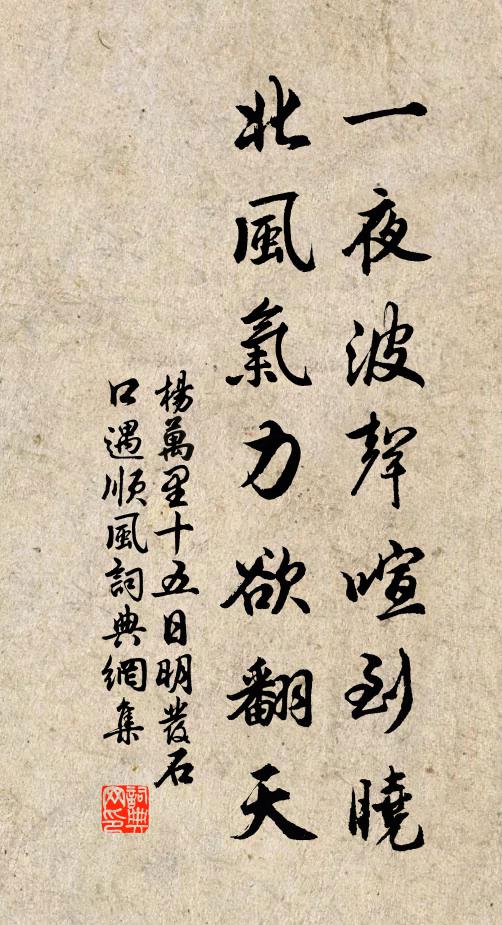 一夜波聲喧到曉
北風氣力欲翻天
楊萬里十五日明發石
口遇順風詞典網集
詞典网印